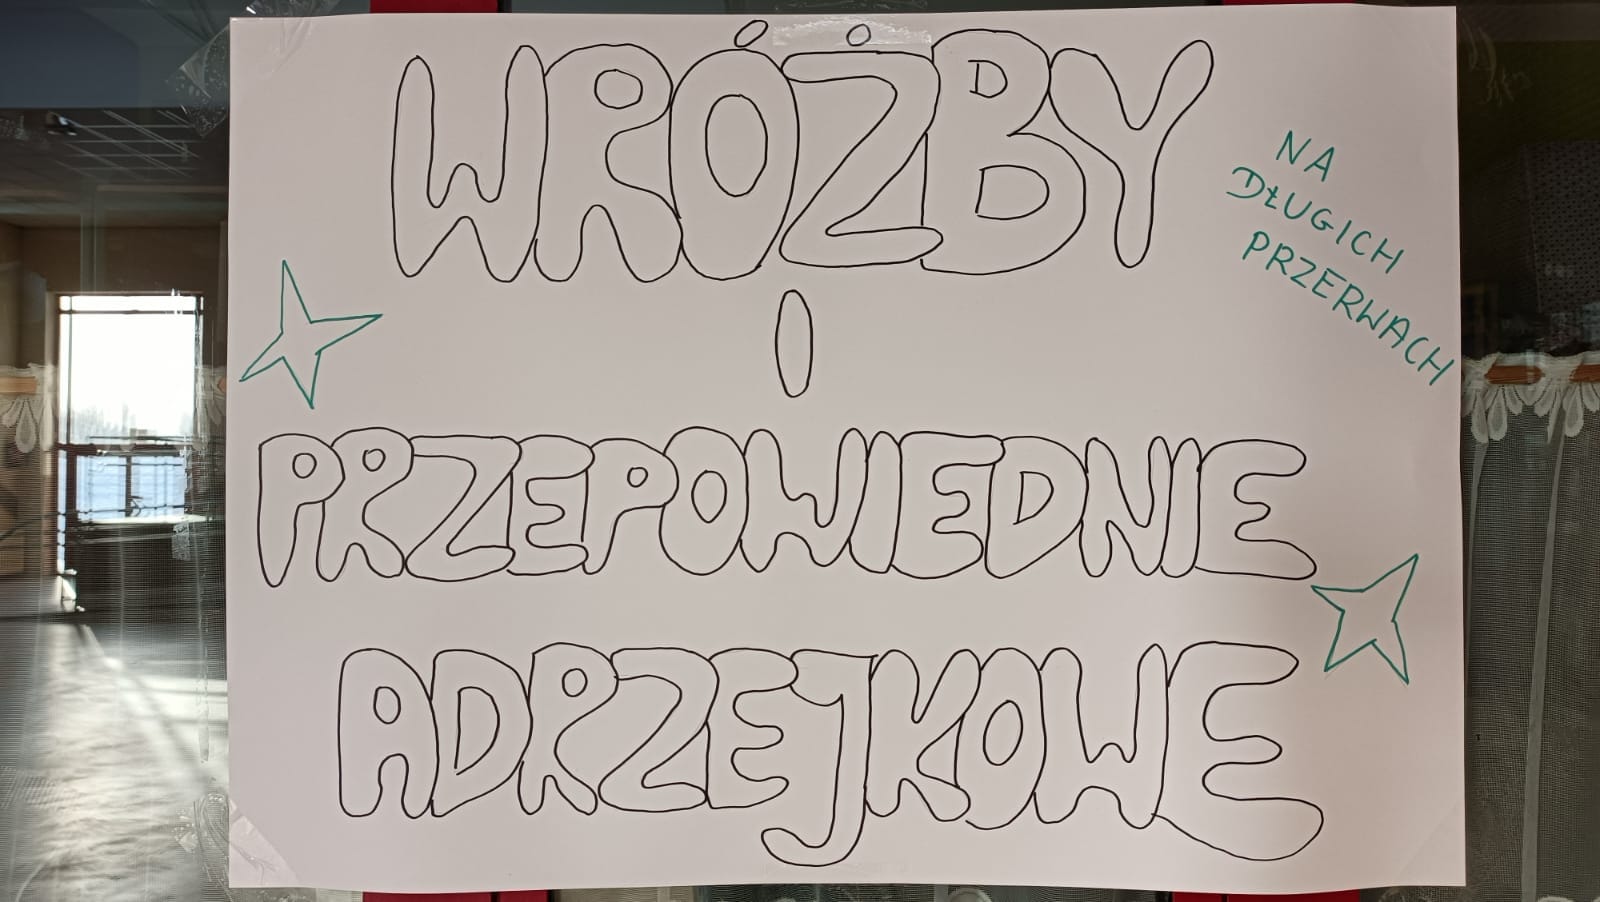 WRÓŻBY
NA
DŁUGICH
PRZERWACH
I
PRZEPOWIEDNIE
ADRZEJKOWE